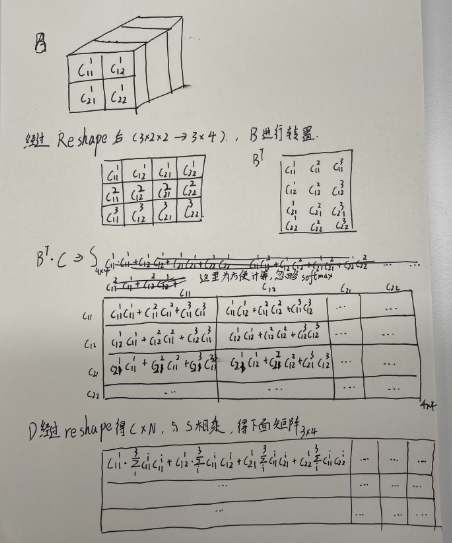 B
C₁₁¹ C₁₂¹
C₂₁¹ C₂₂¹
经过 Reshape 后 (3×2×2 → 3×4)., B 进行转置.
C₁₁¹ C₁₂¹ C₂₁¹ C₂₂¹
C₁₁² C₁₂² C₂₁² C₂₂²
C₁₁³ C₁₂³ C₂₁³ C₂₂³
Bᵀ
C₁₁¹ C₁₁² C₁₁³
C₁₂¹ C₁₂² C₁₂³
C₂₁¹ C₂₁² C₂₁³
C₂₂¹ C₂₂² C₂₂³
Bᵀ · C ⇒ S₄ₓ₄
这里为方便计算,忽略 softmax
C₁₁ C₁₂ C₂₁ C₂₂
C₁₁ C₁₁¹C₁₁¹ + C₁₁²C₁₁² + C₁₁³C₁₁³ C₁₁¹C₁₂¹ + C₁₁²C₁₂² + C₁₁³C₁₂³ ... ...
C₁₂ C₁₂¹C₁₁¹ + C₁₂²C₁₁² + C₁₂³C₁₁³ C₁₂¹C₁₂¹ + C₁₂²C₁₂² + C₁₂³C₁₂³ ... ...
C₂₁ C₂₁¹C₁₁¹ + C₂₁²C₁₁² + C₂₁³C₁₁³ C₂₁¹C₁₂¹ + C₂₁²C₁₂² + C₂₁³C₁₂³ ... ...
C₂₂ ... ... ... ...
4×4
D 经过 reshape 得 C×N, 与 S 相乘, 得下面矩阵 3×4
... ... ...
... ... ...